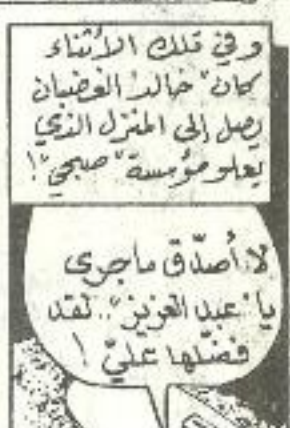 وفي تلك الأثناء
كان "خالد" الغضبان
يصل إلى المنزل الذي
يعلو مؤسسة "صبحي"!
لا أصدّق ما جرى
يا "عبد العزيز".. لقد
فضّلها عليّ !